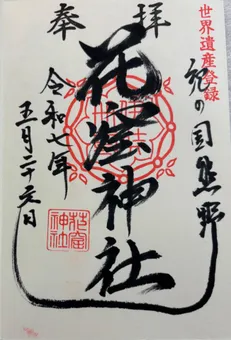 世界遺産登録
紀の国熊野
奉拝
花窟神社
令和七年
五月二十日
花窟
神社